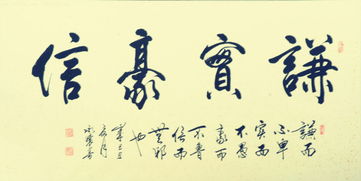 謙實豪信
謙而
不卑
實而
不愚
豪而
不魯
信而
無邪
也